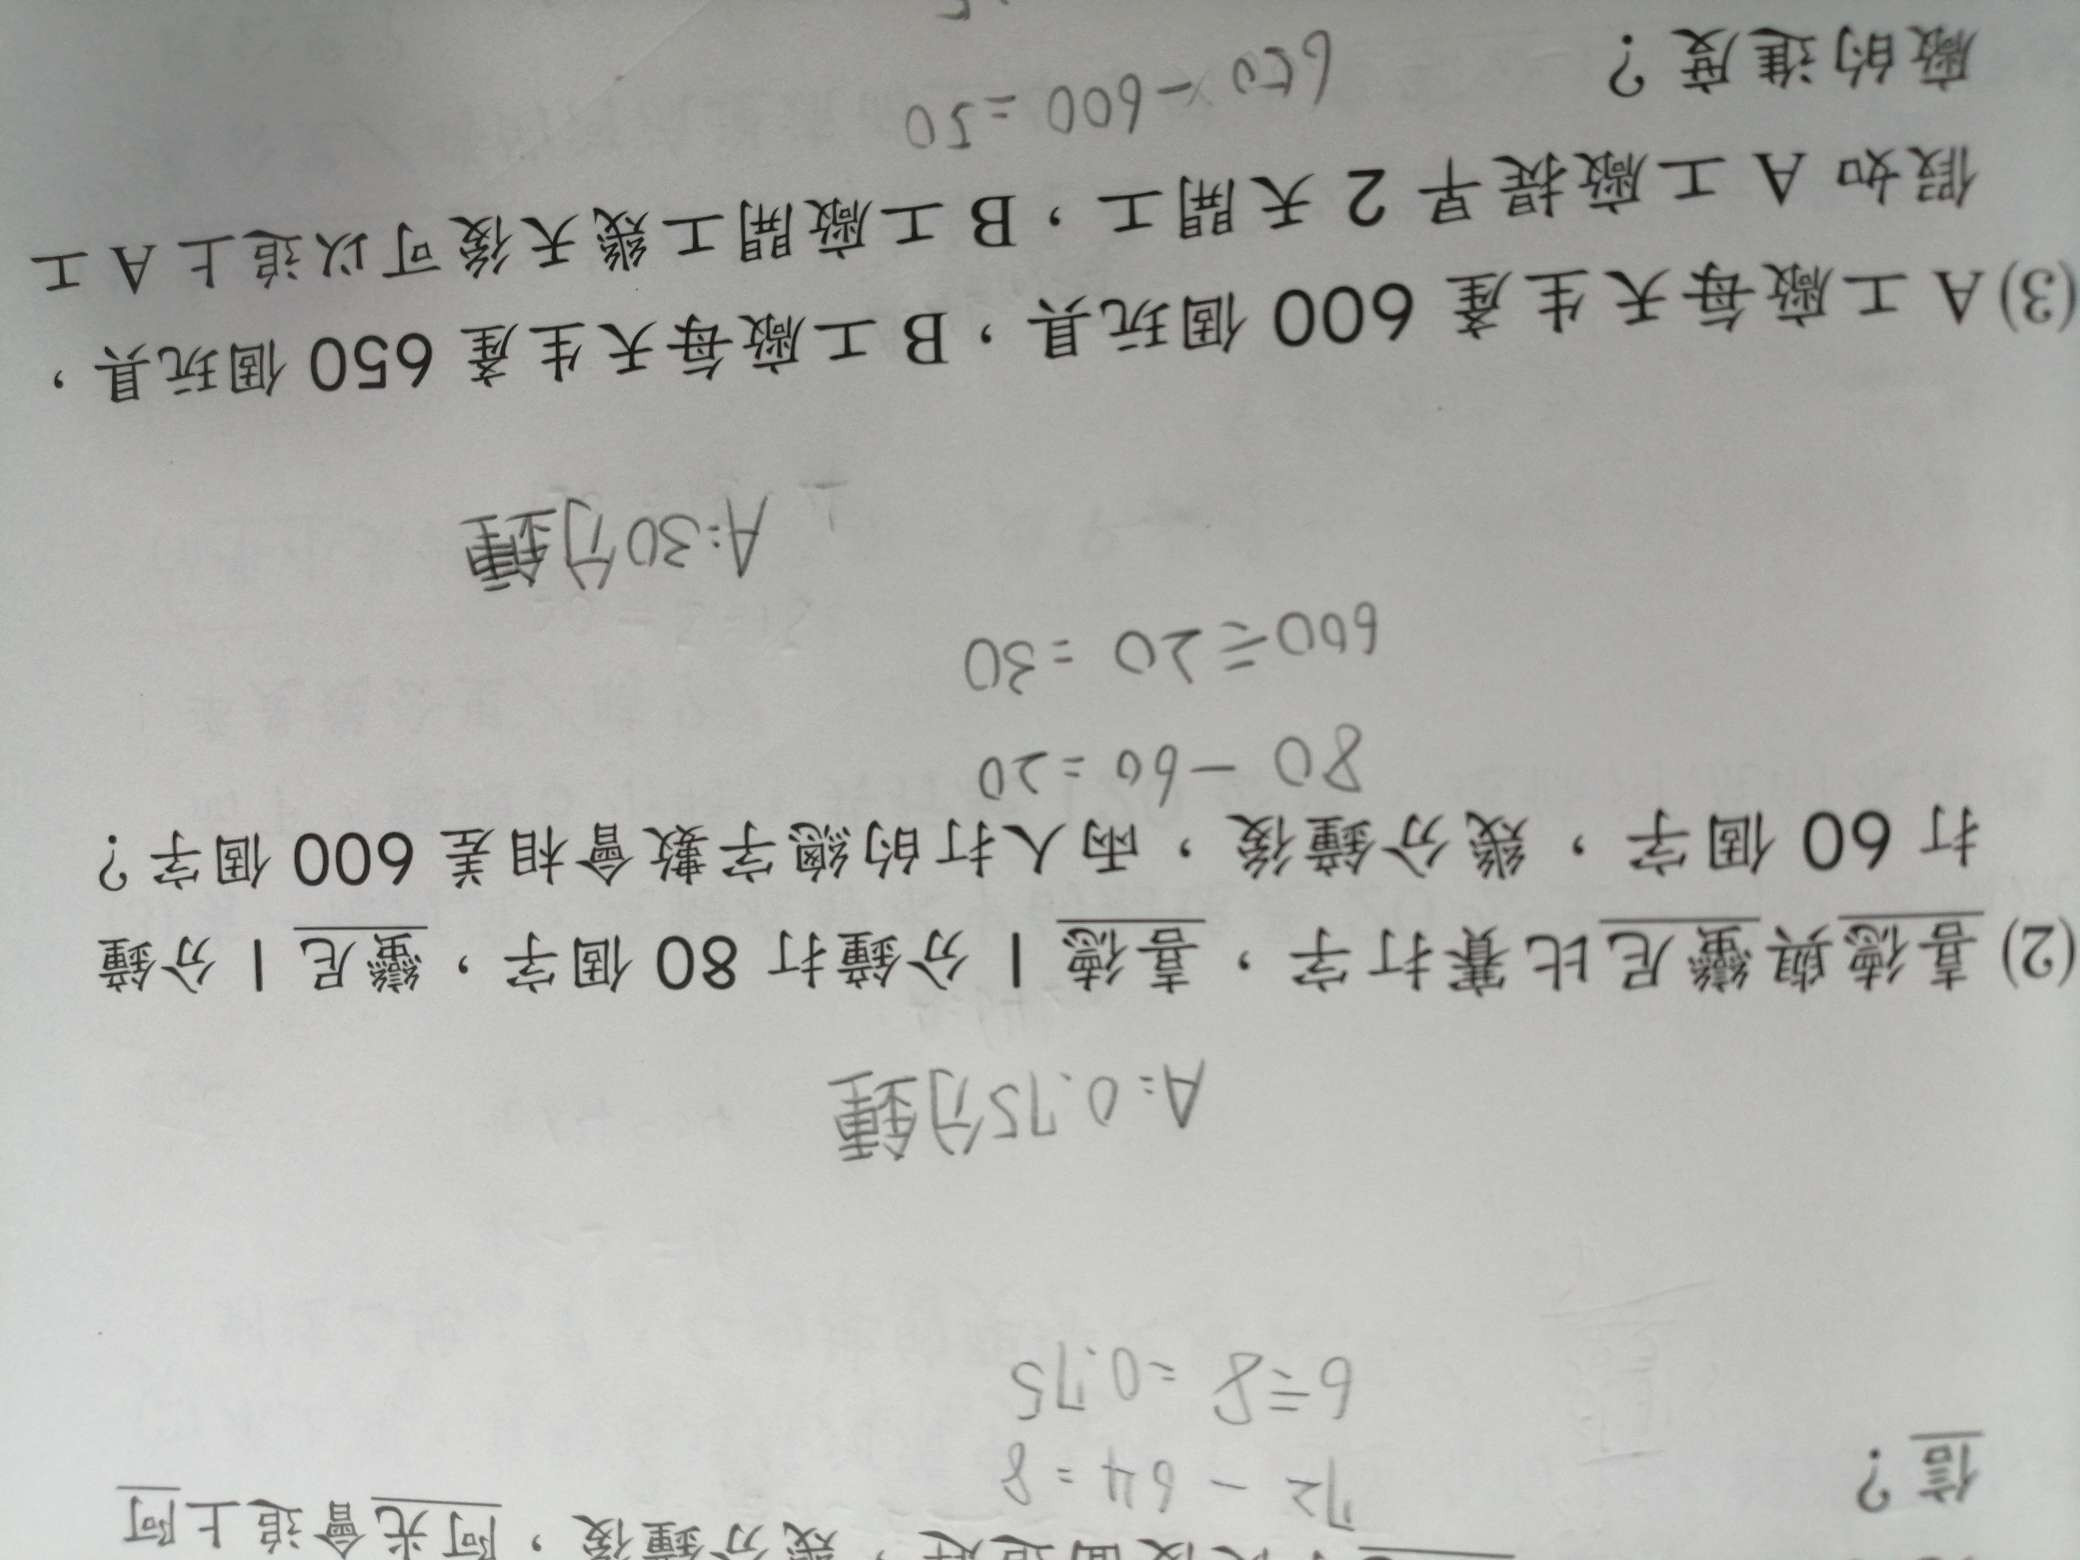 會追上阿
信?
72 - 64 = 8
6÷8 = 0.75
A:0.75分鐘
(2) 喜德與蠻尼比賽打字,喜德 1 分鐘打 80 個字,蠻尼 1 分鐘
打 60 個字,幾分鐘後,兩人打的總字數會相差 600 個字?
80 - 60 = 20
600÷20 = 30
A:30分鐘
(3) A 工廠每天生產 600 個玩具,B 工廠每天生產 650 個玩具,
假如 A 工廠提早 2 天開工,B 工廠開工幾天後可以追上 A 工
廠的進度?
650 - 600 = 50